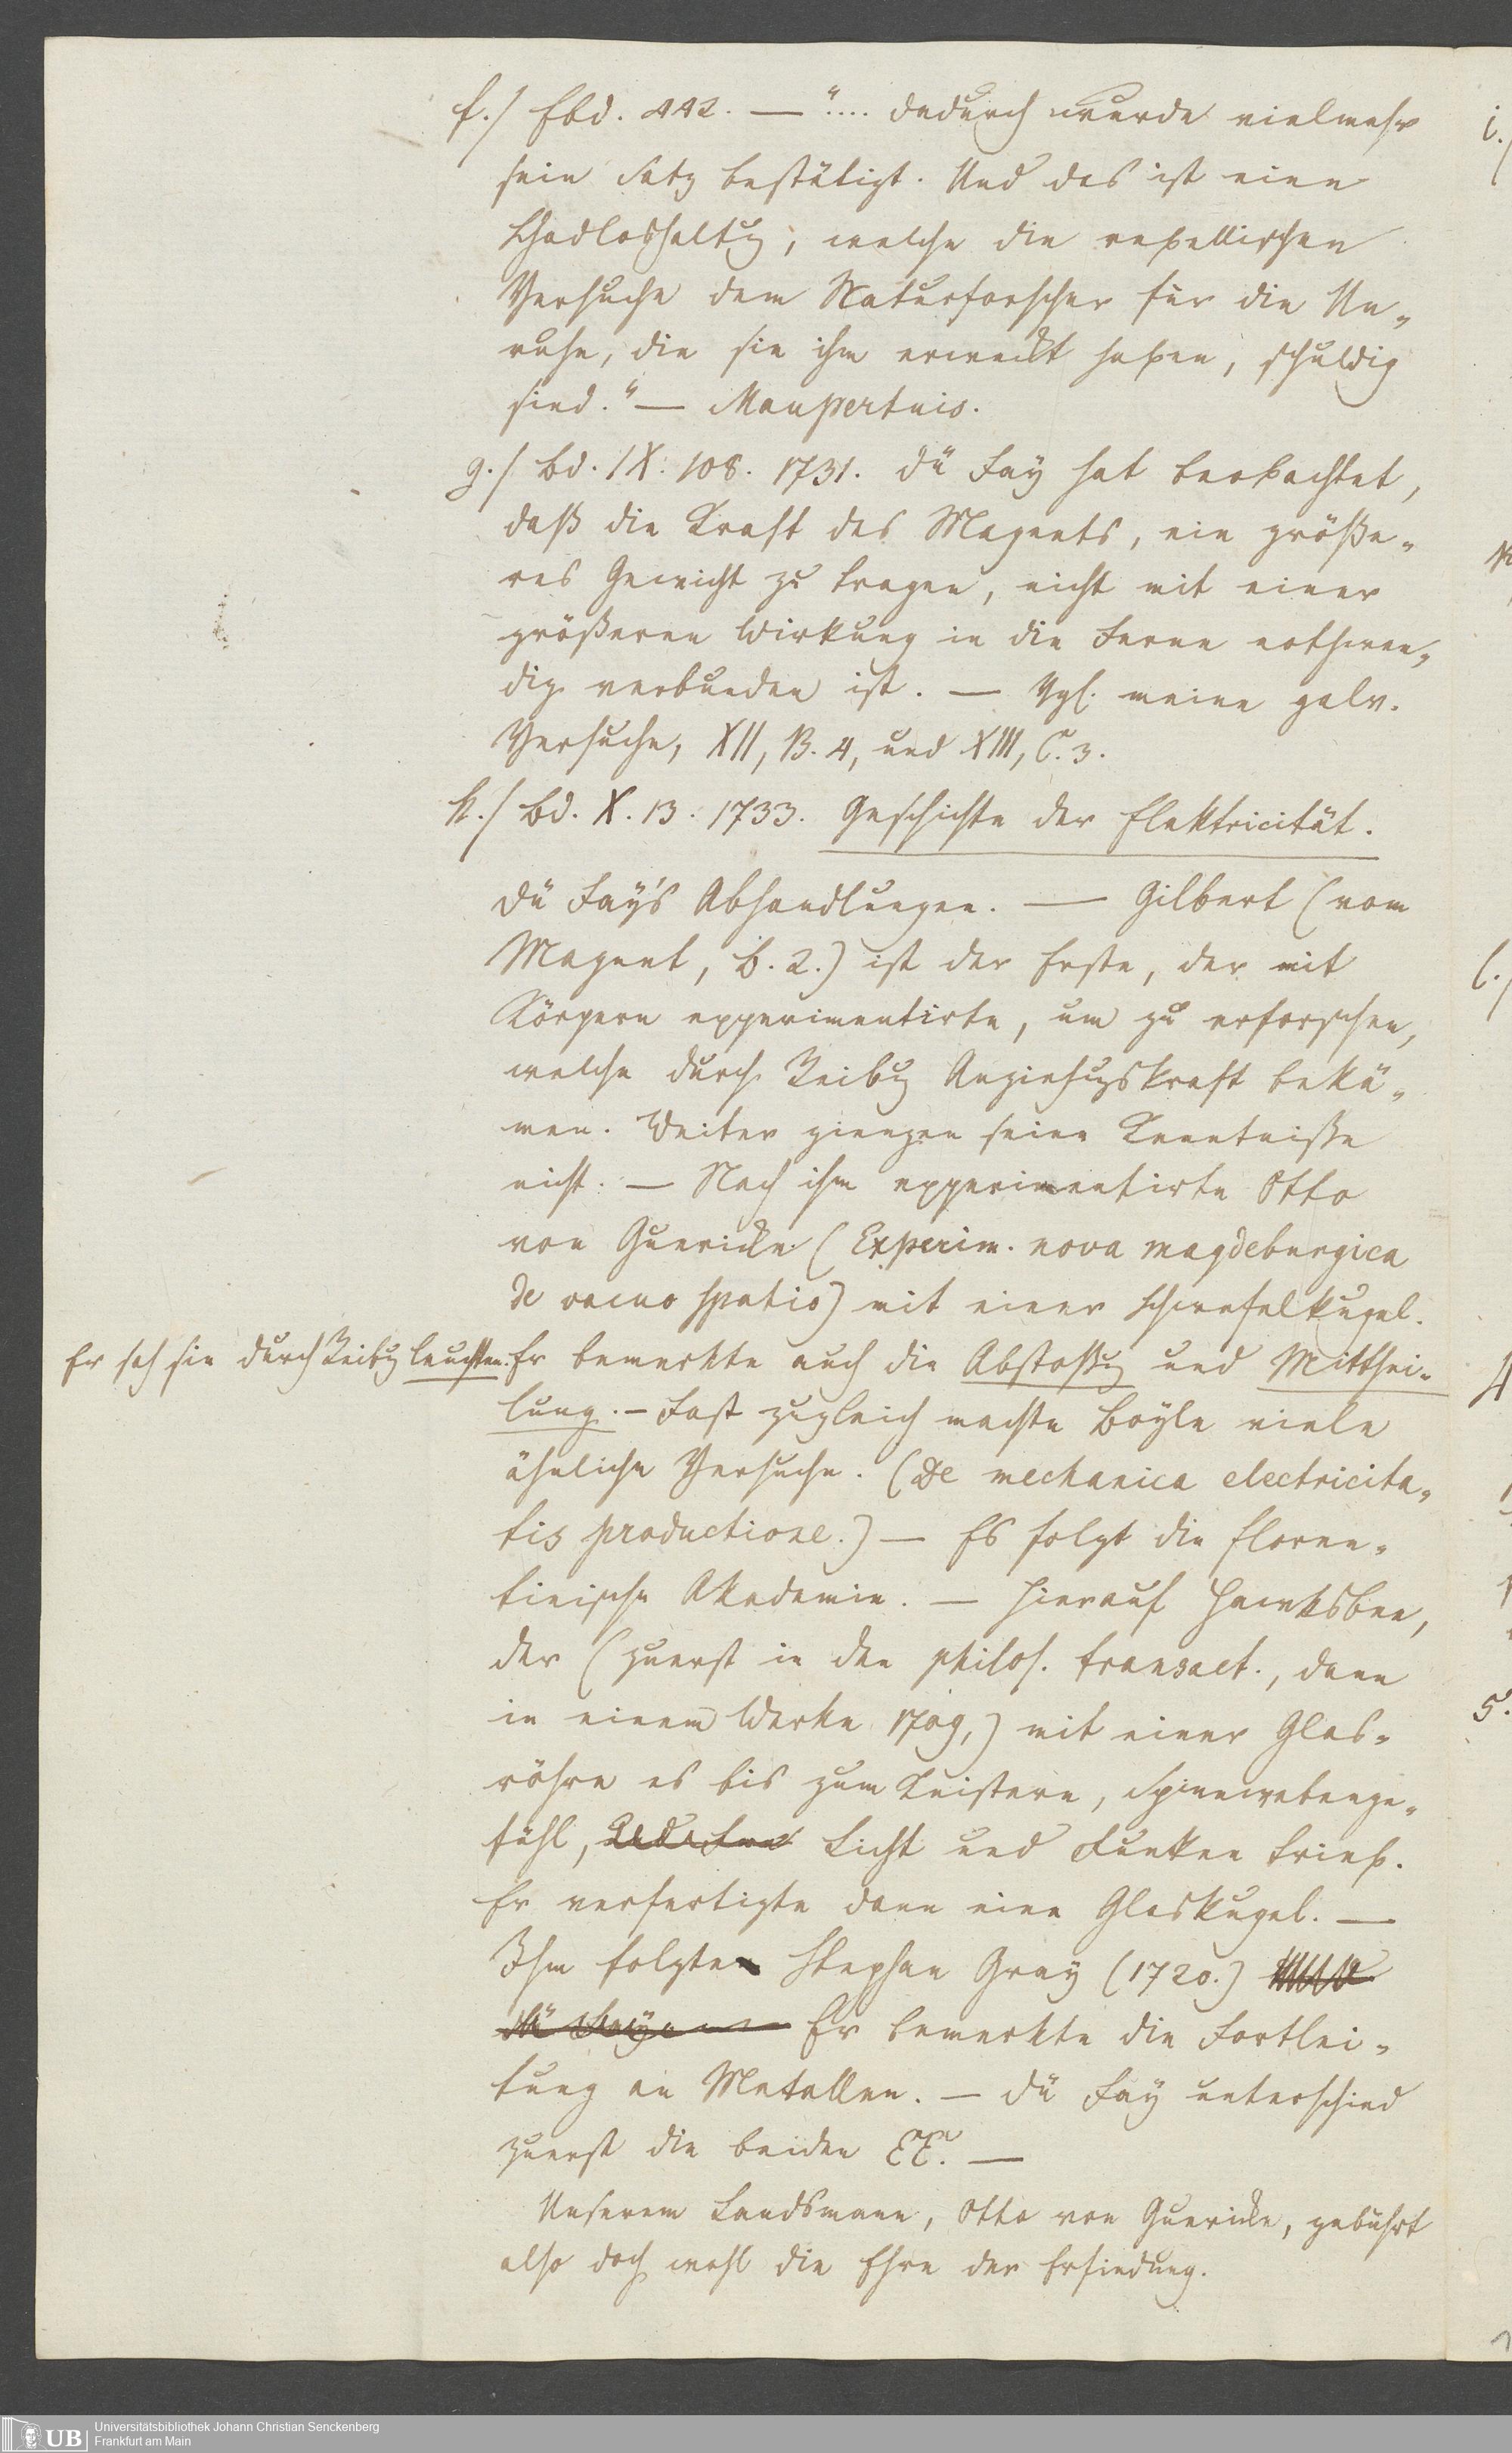 f./ Ebd. 442. — ".... dadurch wurde vielmehr
sein Satz bestätigt. Und das ist eine
Schadloshaltg, welche die rebellischen
Versuche dem Naturforscher für die Un-
ruhe, die sie ihm erweckt haben, schuldig
sind." — Maupertuis.
g./ Bd. IX. 108. 1731. Dü Fay hat beobachtet,
daß die Kraft des Magnets, ein größe-
res Gewicht zu tragen, nicht mit einer
größeren Wirkung in die Ferne nothwen-
dig verbunden ist. — Vgl. meine galv.
Versuche, XII, B. 4, und XIII, C. 3.
h./ Bd. X. 13. 1733. Geschichte der Elektricität.
Dü Fay's Abhandlungen. — Gilbert (vom
Magnet, B. 2.) ist der Erste, der mit
Körpern experimentirte, um zu erforschen,
welche durch Reibg Anziehgskraft bekä-
men. Weiter giengen seine Kenntniße
nicht. — Nach ihm experimentirte Otto
von Guericke (Experim. nova magdeburgica
de vacuo spatio) mit einer Schwefelkugel.
Er sah sie durch Reibg leuchten. Er bemerkte auch die Abstoßg und Mitthei-
lung. — Fast zugleich machte Boyle viele
ähnliche Versuche. (De mechanica electricita-
tis productione.) — Es folgt die floren-
tinische Akademie. — Hierauf Hawksbee,
der (zuerst in den philos. transact., dann
in einem Werke 1709,) mit einer Glas-
röhre es bis zum Knistern, Spinnwebenge-
fühl, Licht und Funken trieb.
Er verfertigte dann eine Glaskugel. —
Ihm folgte Stephan Gray (1720.)
Er bemerkte die Fortlei-
tung an Metallen. — Dü Fay unterschied
zuerst die beiden EE. —
Unserem Landsmann, Otto von Guericke, gebührt
also doch wohl die Ehre der Erfindung.
i./
l./
5.
UB Universitätsbibliothek Johann Christian Senckenberg
Frankfurt am Main